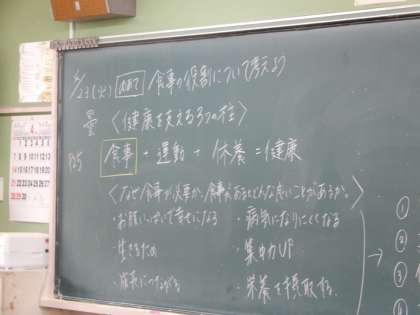 6/23(火) めあて 食事の役割について考えよう
曇 〈健康を支える3つの柱〉
P.5 食事 + 運動 + 休養 = 健康
〈なぜ食事が必要か、食事があるとどんな良いことがあるか。〉
・お腹いっぱいで幸せになる ・病気になりにくくなる
・生きるため ・集中力UP
・成長につながる ・栄養を摂取する
①
②
③
④